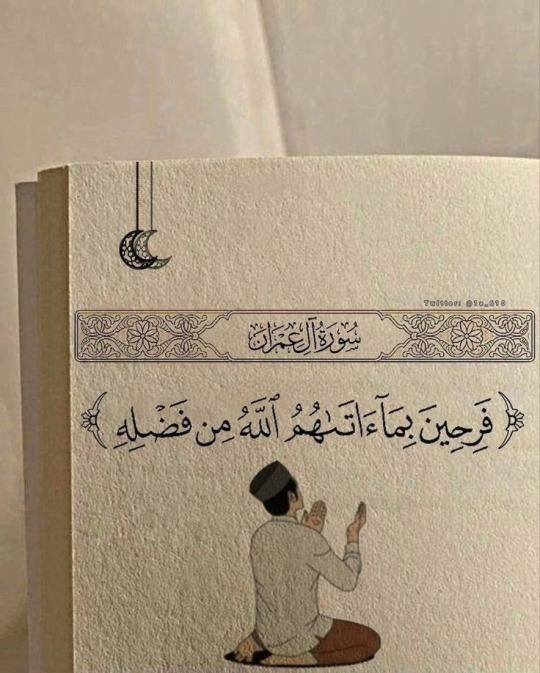 Twitter: @1a_610
سُورَةُ آلِ عِمْرَان
﴿ فَرِحِينَ بِمَآ ءَاتَىٰهُمُ ٱللَّهُ مِن فَضْلِهِ ﴾